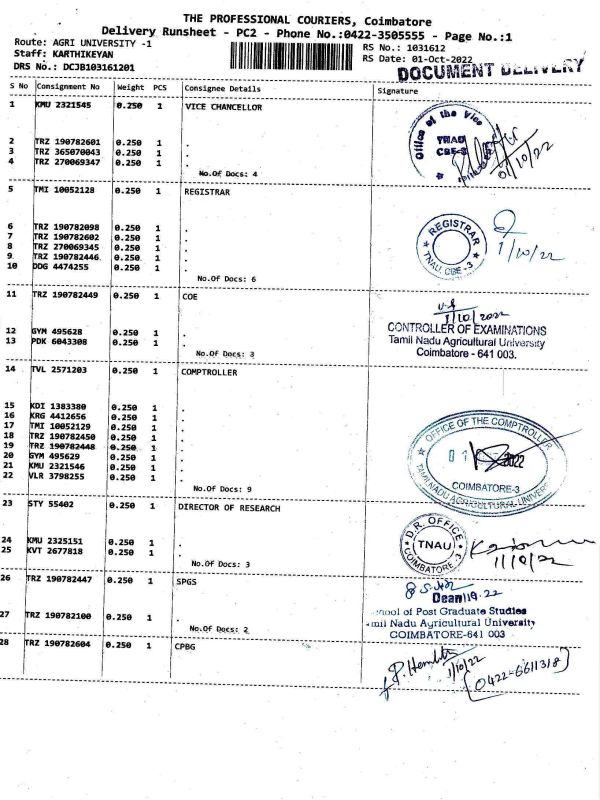 THE PROFESSIONAL COURIERS, Coimbatore
Delivery Runsheet - PC2 - Phone No.:0422-3505555 - Page No.:1
Route: AGRI UNIVERSITY -1 RS No.: 1031612
Staff: KARTHIKEYAN RS Date: 01-Oct-2022
DRS No.: DCJB103161201 DOCUMENT DELIVERY
S No Consignment No Weight PCS Consignee Details Signature
1 KMU 2321545 0.250 1 VICE CHANCELLOR
Office of the Vice
2 TRZ 190782601 0.250 1 .
3 TRZ 365070043 0.250 1 .
4 TRZ 270069347 0.250 1 .
01/10/22
No.Of Docs: 4
5 TMI 10052128 0.250 1 REGISTRAR
REGISTRAR
TNAU, CBE - 3
1/10/22
6 TRZ 190782098 0.250 1 .
7 TRZ 190782602 0.250 1 .
8 TRZ 270069345 0.250 1 .
9 TRZ 190782446 0.250 1 .
10 DDG 4474255 0.250 1 .
No.Of Docs: 6
11 TRZ 190782449 0.250 1 COE
1/10/2022
CONTROLLER OF EXAMINATIONS
Tamil Nadu Agricultural University
Coimbatore - 641 003.
12 GYM 495628 0.250 1 .
13 PDK 6043308 0.250 1 .
No.Of Docs: 3
14 TVL 2571203 0.250 1 COMPTROLLER
15 KDI 1383380 0.250 1 .
16 KRG 4412656 0.250 1 .
17 TMI 10052129 0.250 1 .
18 TRZ 190782450 0.250 1 .
19 TRZ 190782448 0.250 1 .
20 GYM 495629 0.250 1 .
21 KMU 2321546 0.250 1 .
22 VLR 3798255 0.250 1 .
OFFICE OF THE COMPTROLLER
01 2022
COIMBATORE-3
TAMIL NADU AGRICULTURAL UNIVERSITY
No.Of Docs: 9
23 STY 55402 0.250 1 DIRECTOR OF RESEARCH
D.R. OFFICE
TNAU
COIMBATORE - 3
1/10/22
24 KMU 2325151 0.250 1 .
25 KVT 2677818 0.250 1 .
No.Of Docs: 3
26 TRZ 190782447 0.250 1 SPGS
Dean
of Post Graduate Studies
Nadu Agricultural University
COIMBATORE-641 003
27 TRZ 190782100 0.250 1 .
No.Of Docs: 2
28 TRZ 190782604 0.250 1 CPBG
1/10/22
(0422-6611318)